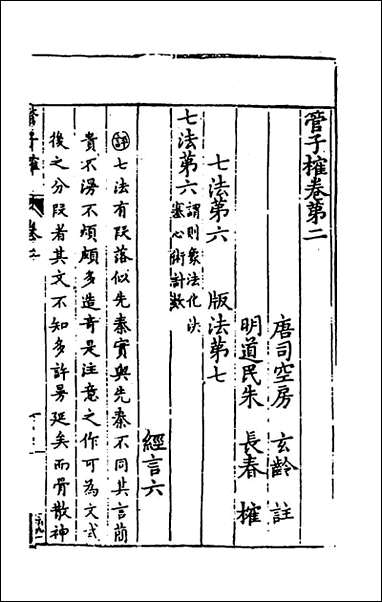 管子榷卷第二
唐司空房　玄齡　註
明道民朱　長春　榷
七法第六　版法第七
七法第六　謂則象法化決
塞心術計數
經言六
評七法有段落似先秦實與先秦不同其言簡
貴不湯不煩頗多造奇是注意之作可為文式
後之分段者其文不知多許易延矣而骨散神